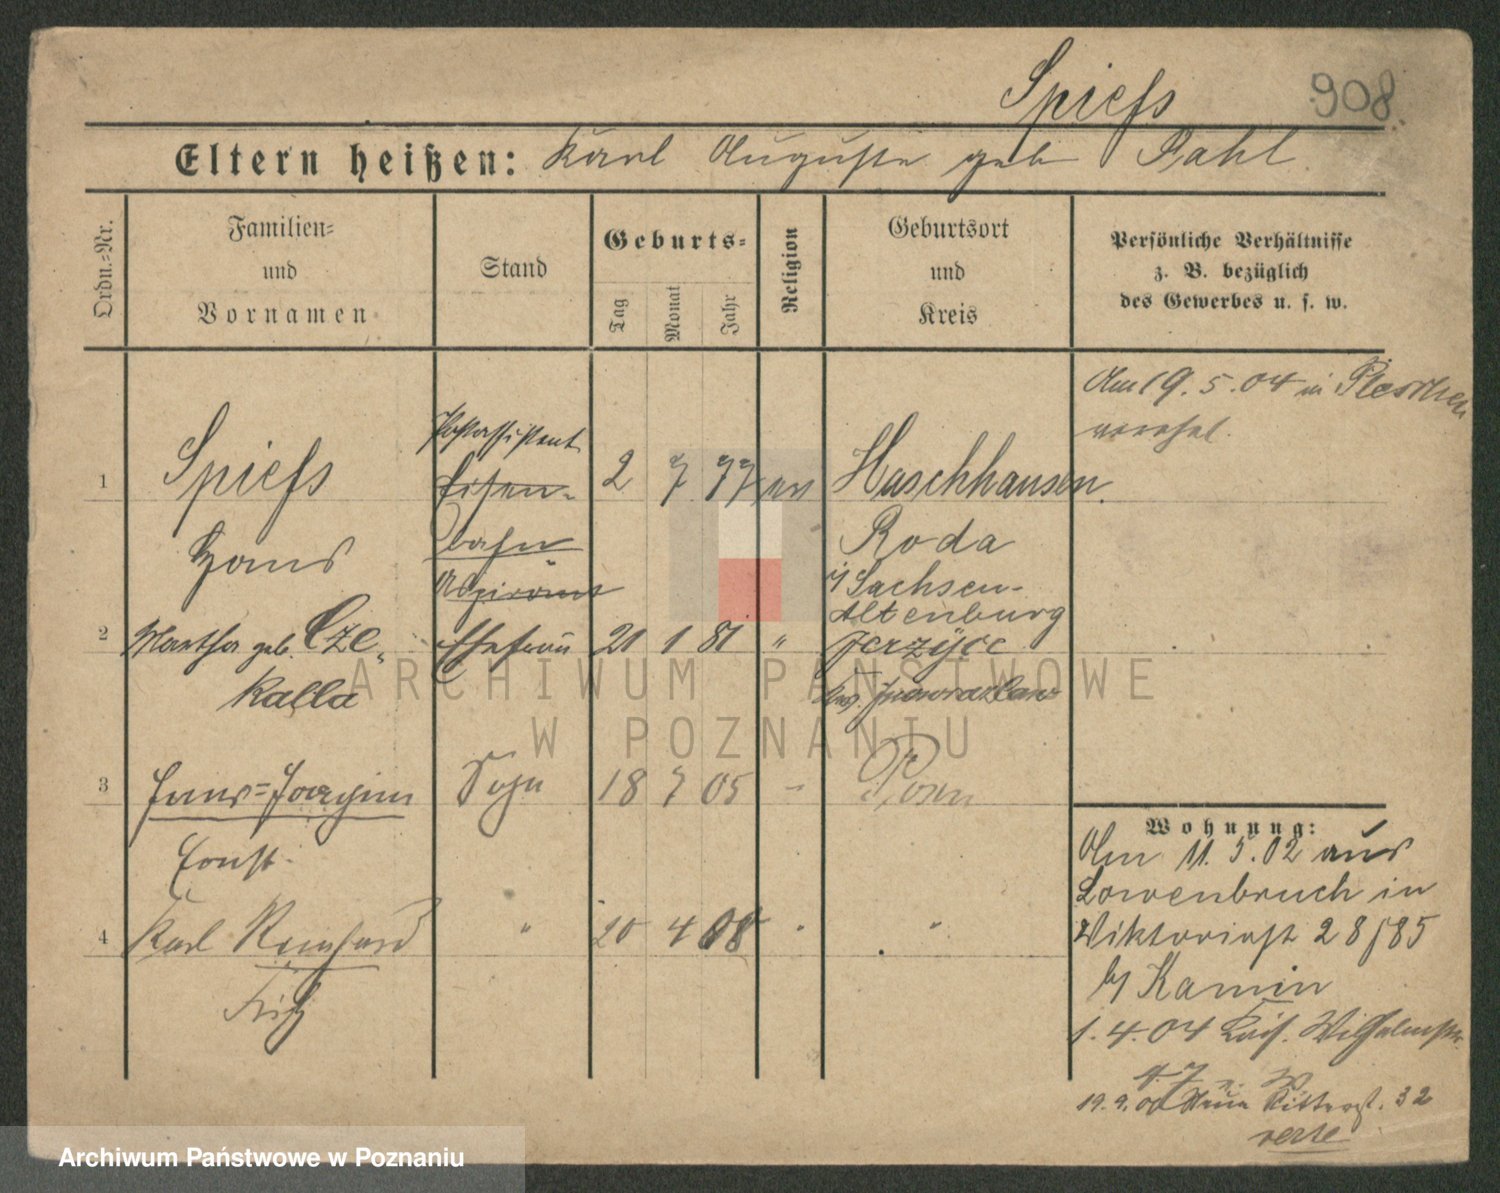 Spiess 908.
Eltern heißen: Karl Auguste geb Pahl
Ordn.-Nr.
Familien-
und
Vornamen
Stand
Geburts-
Tag
Monat
Jahr
Religion
Geburtsort
und
Kreis
Persönliche Verhältnisse
z. B. bezüglich
des Gewerbes u. s. w.
Am 19.5.04 in Pleschen
verehel.
Postassistent
1 Spiess Eisen- 2 7 77 ev Haschhausen.
Hans bahn Roda
Aspirant i/ Sachsen-
Altenburg
2 Martha geb. Cze- Ehefrau 21 1 81 " Jerzyce
kalla Krs. Inowrazlaw
3 Hans-Joachim Sohn 18 7 05 - Posen
Ernst
4 Karl Reinhard " 20 4 08 " "
Fritz
Wohnung:
Am 11.5.02 aus
Lowenbruch in
Viktoriast 28/85
b/ Kamin
1.4.04 Kais. Wilhelmstr.
19.9. Neue Ritterst. 32
verte
ARCHIWUM PAŃSTWOWE
W POZNANIU
Archiwum Państwowe w Poznaniu